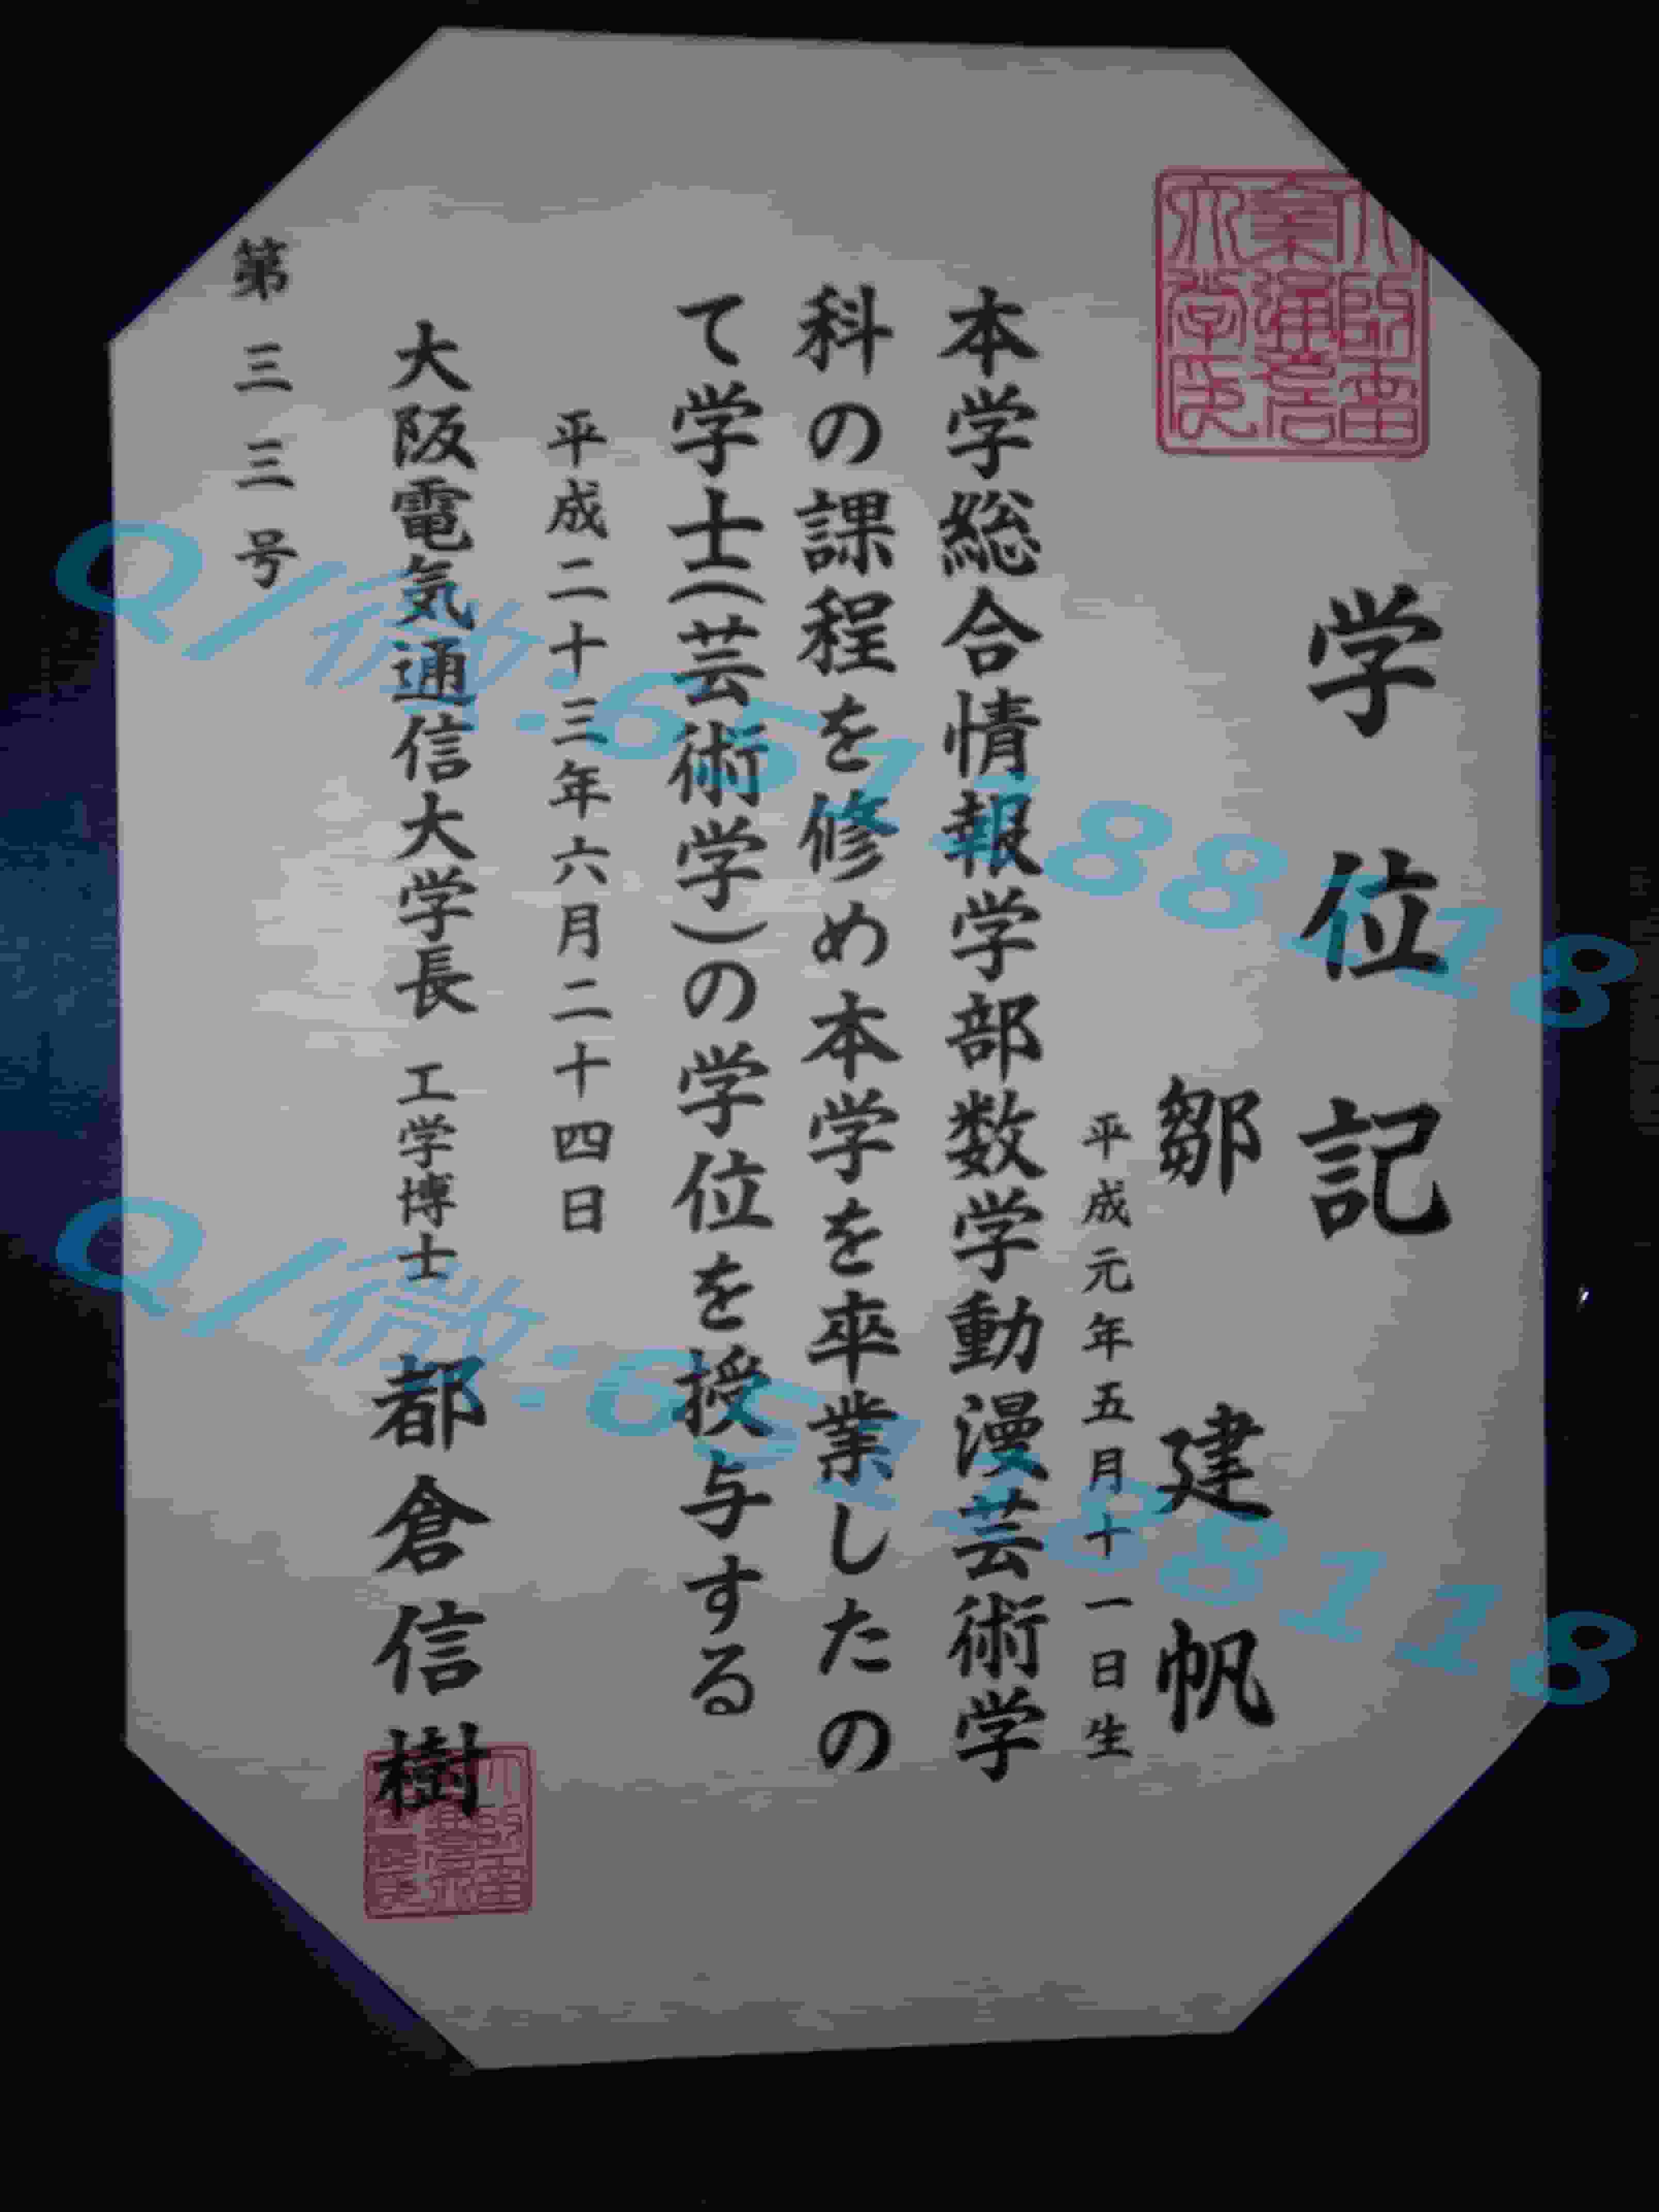 学位記
鄒建帆
平成元年五月十一日生
本学総合情報学部数学動漫芸術学
科の課程を修め本学を卒業したの
て学士(芸術学)の学位を授与する
平成二十三年六月二十四日
大阪電気通信大学長 工学博士 都倉信樹
第三三号
Q/微:657188118
Q/微:657188118